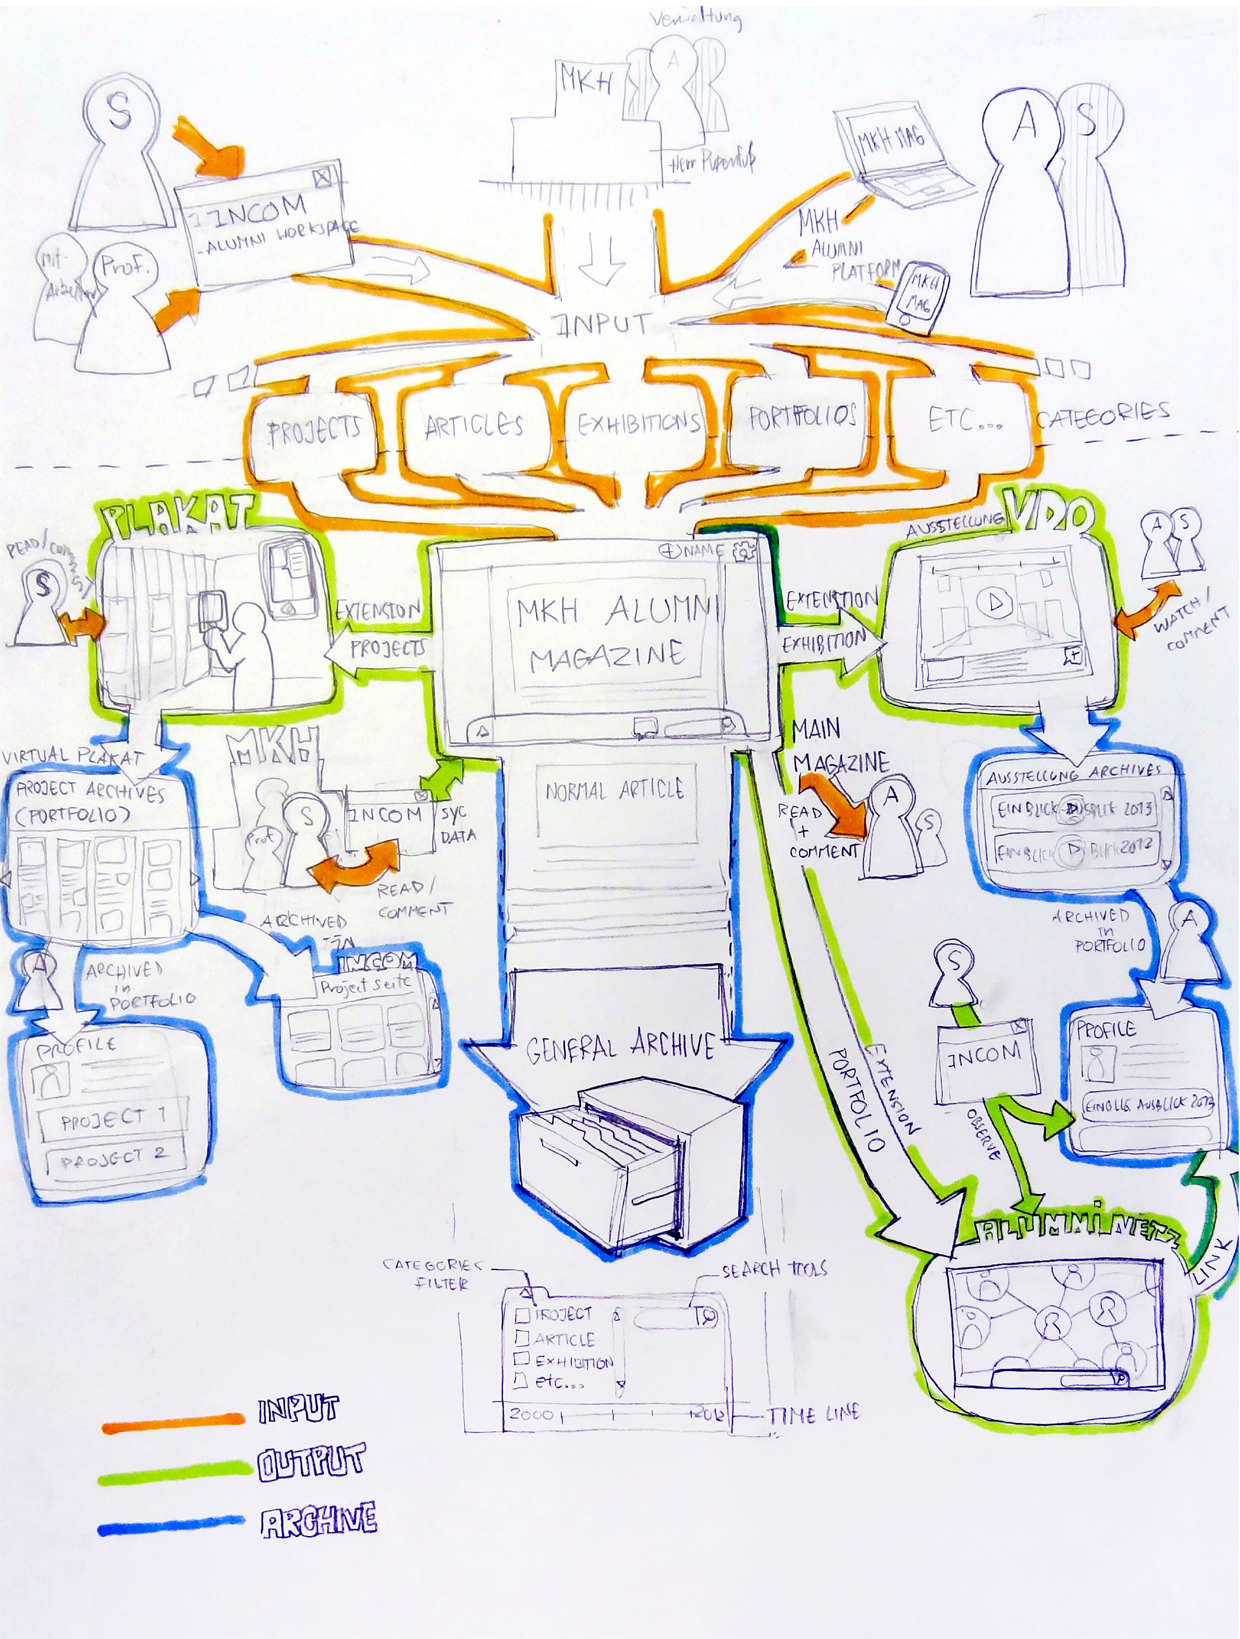 Verwaltung
A
MKH
S
Herr Pupenfuß
MKH MAG
A
S
INCOM
-ALUMNI WORKSPACE
MKH
ALUMNI
PLATFORM
Mit-
Arbeiter
Prof.
MKH
MAG
INPUT
PROJECTS
ARTICLES
EXHIBITIONS
PORTFOLIOS
ETC...
CATEGORIES
PLAKAT
AUSSTELLUNG
VDO
READ/COMMENT
S
NAME
A
S
EXTENSION
PROJECTS
MKH ALUMNI
MAGAZINE
EXTENTION
EXHIBITION
WATCH/
COMMENT
VIRTUAL PLAKAT
PROJECT ARCHIVES
(PORTFOLIO)
MKH
Prof.
S
INCOM
SYC
DATA
READ/
COMMENT
NORMAL ARTICLE
MAIN
MAGAZINE
READ
+
COMMENT
A
S
AUSSTELLUNG ARCHIVES
EINBLICK AUSBLICK 2013
EINBLICK BLICK 2012
ARCHIVED
IN
INCOM
Project Seite
A
ARCHIVED
in
PORTFOLIO
ARCHIVED
in
PORTFOLIO
A
S
PROFILE
PROJECT 1
PROJECT 2
GENERAL ARCHIVE
EXTENSION
PORTFOLIO
INCOM
OBSERVE
PROFILE
EINBLIC AUSBLICK 2013
ALUMNI NETZ
LINK
CATEGORIES
FILTER
SEARCH TOOLS
PROJECT
ARTICLE
EXHIBITION
etc...
2000
2012
TIME LINE
INPUT
OUTPUT
ARCHIVE